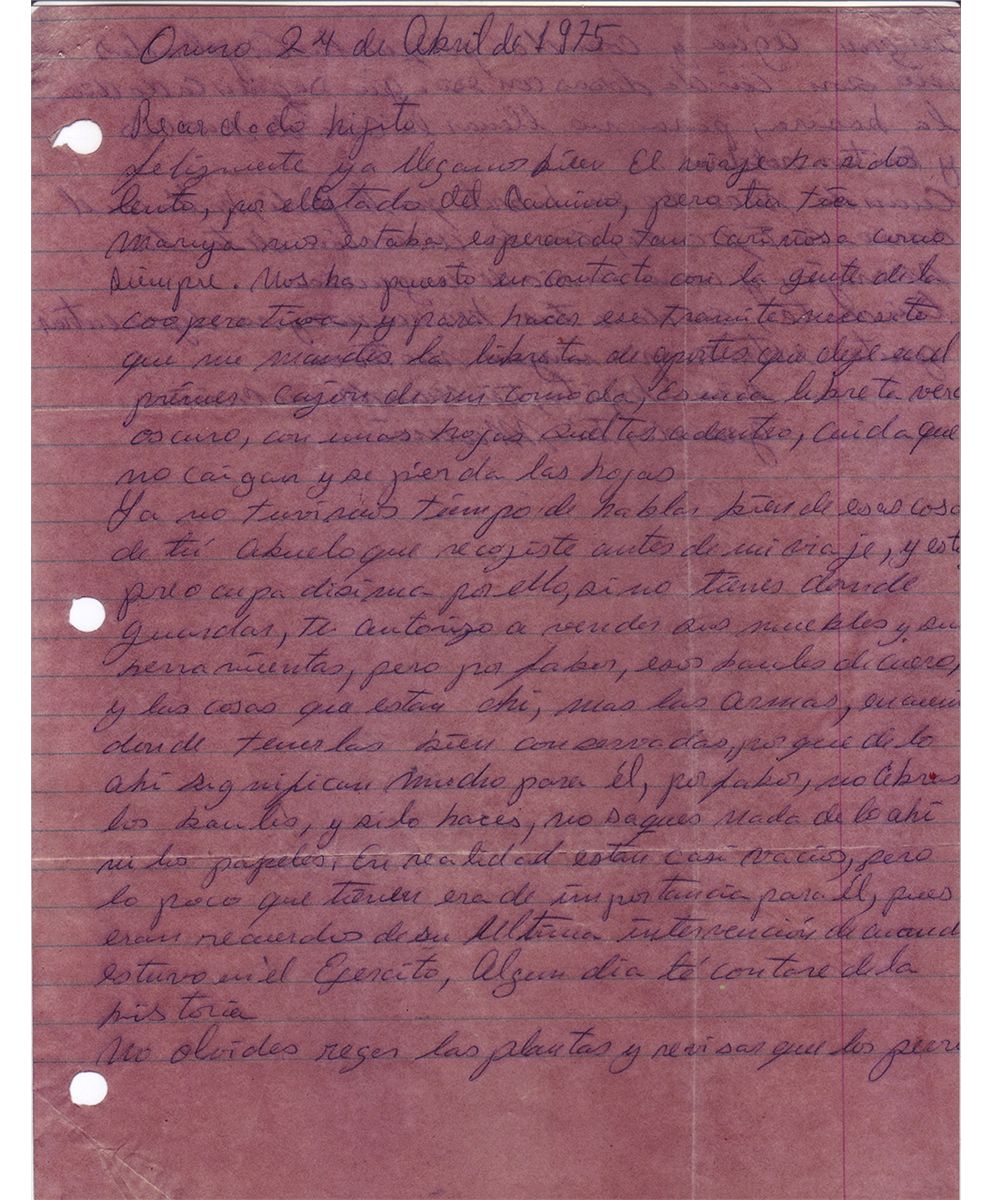 Oruro 24 de Abril de 1975
Recordado hijito
Felizmente ya llegamos bien El viaje ha sido
lento, por el estado del Camino, pero tu tía
Maruja nos estaba esperando tan cariñosa como
siempre. Nos ha puesto en contacto con la gente de la
cooperativa, y para hacer ese tramite necesito
que me mandes la libreta de aportes que deje en el
primer cajón de mi comoda, es una libreta
oscuro, con unas hojas sueltas adentro, cuida que
no caigan y se pierda las hojas
Ya no tuvimos tiempo de hablar bien de esas
de tú abuelo que recojiste antes de mi viaje, y
preocupadisima por ello, si no tienes donde
guardar, te autorizo a vender sus muebles y
herramientas, pero por fabor, esos baules de cuero,
y las cosas que estan ahi, mas las armas,
donde tenerlas bien conservadas, porque de lo
ahi significan mucho para él, por fabor, no abras
los baules, y si lo haces, no saques nada de lo ahi
ni los papeles. En realidad estan casi vacios, pero
lo poco que tienen era de importancia para él, pues
eran recuerdos de su Ultima intervención de
estuvo en el Ejercito, Algun dia té contare de la
historia
No olvides regar las plantas y revisar que los